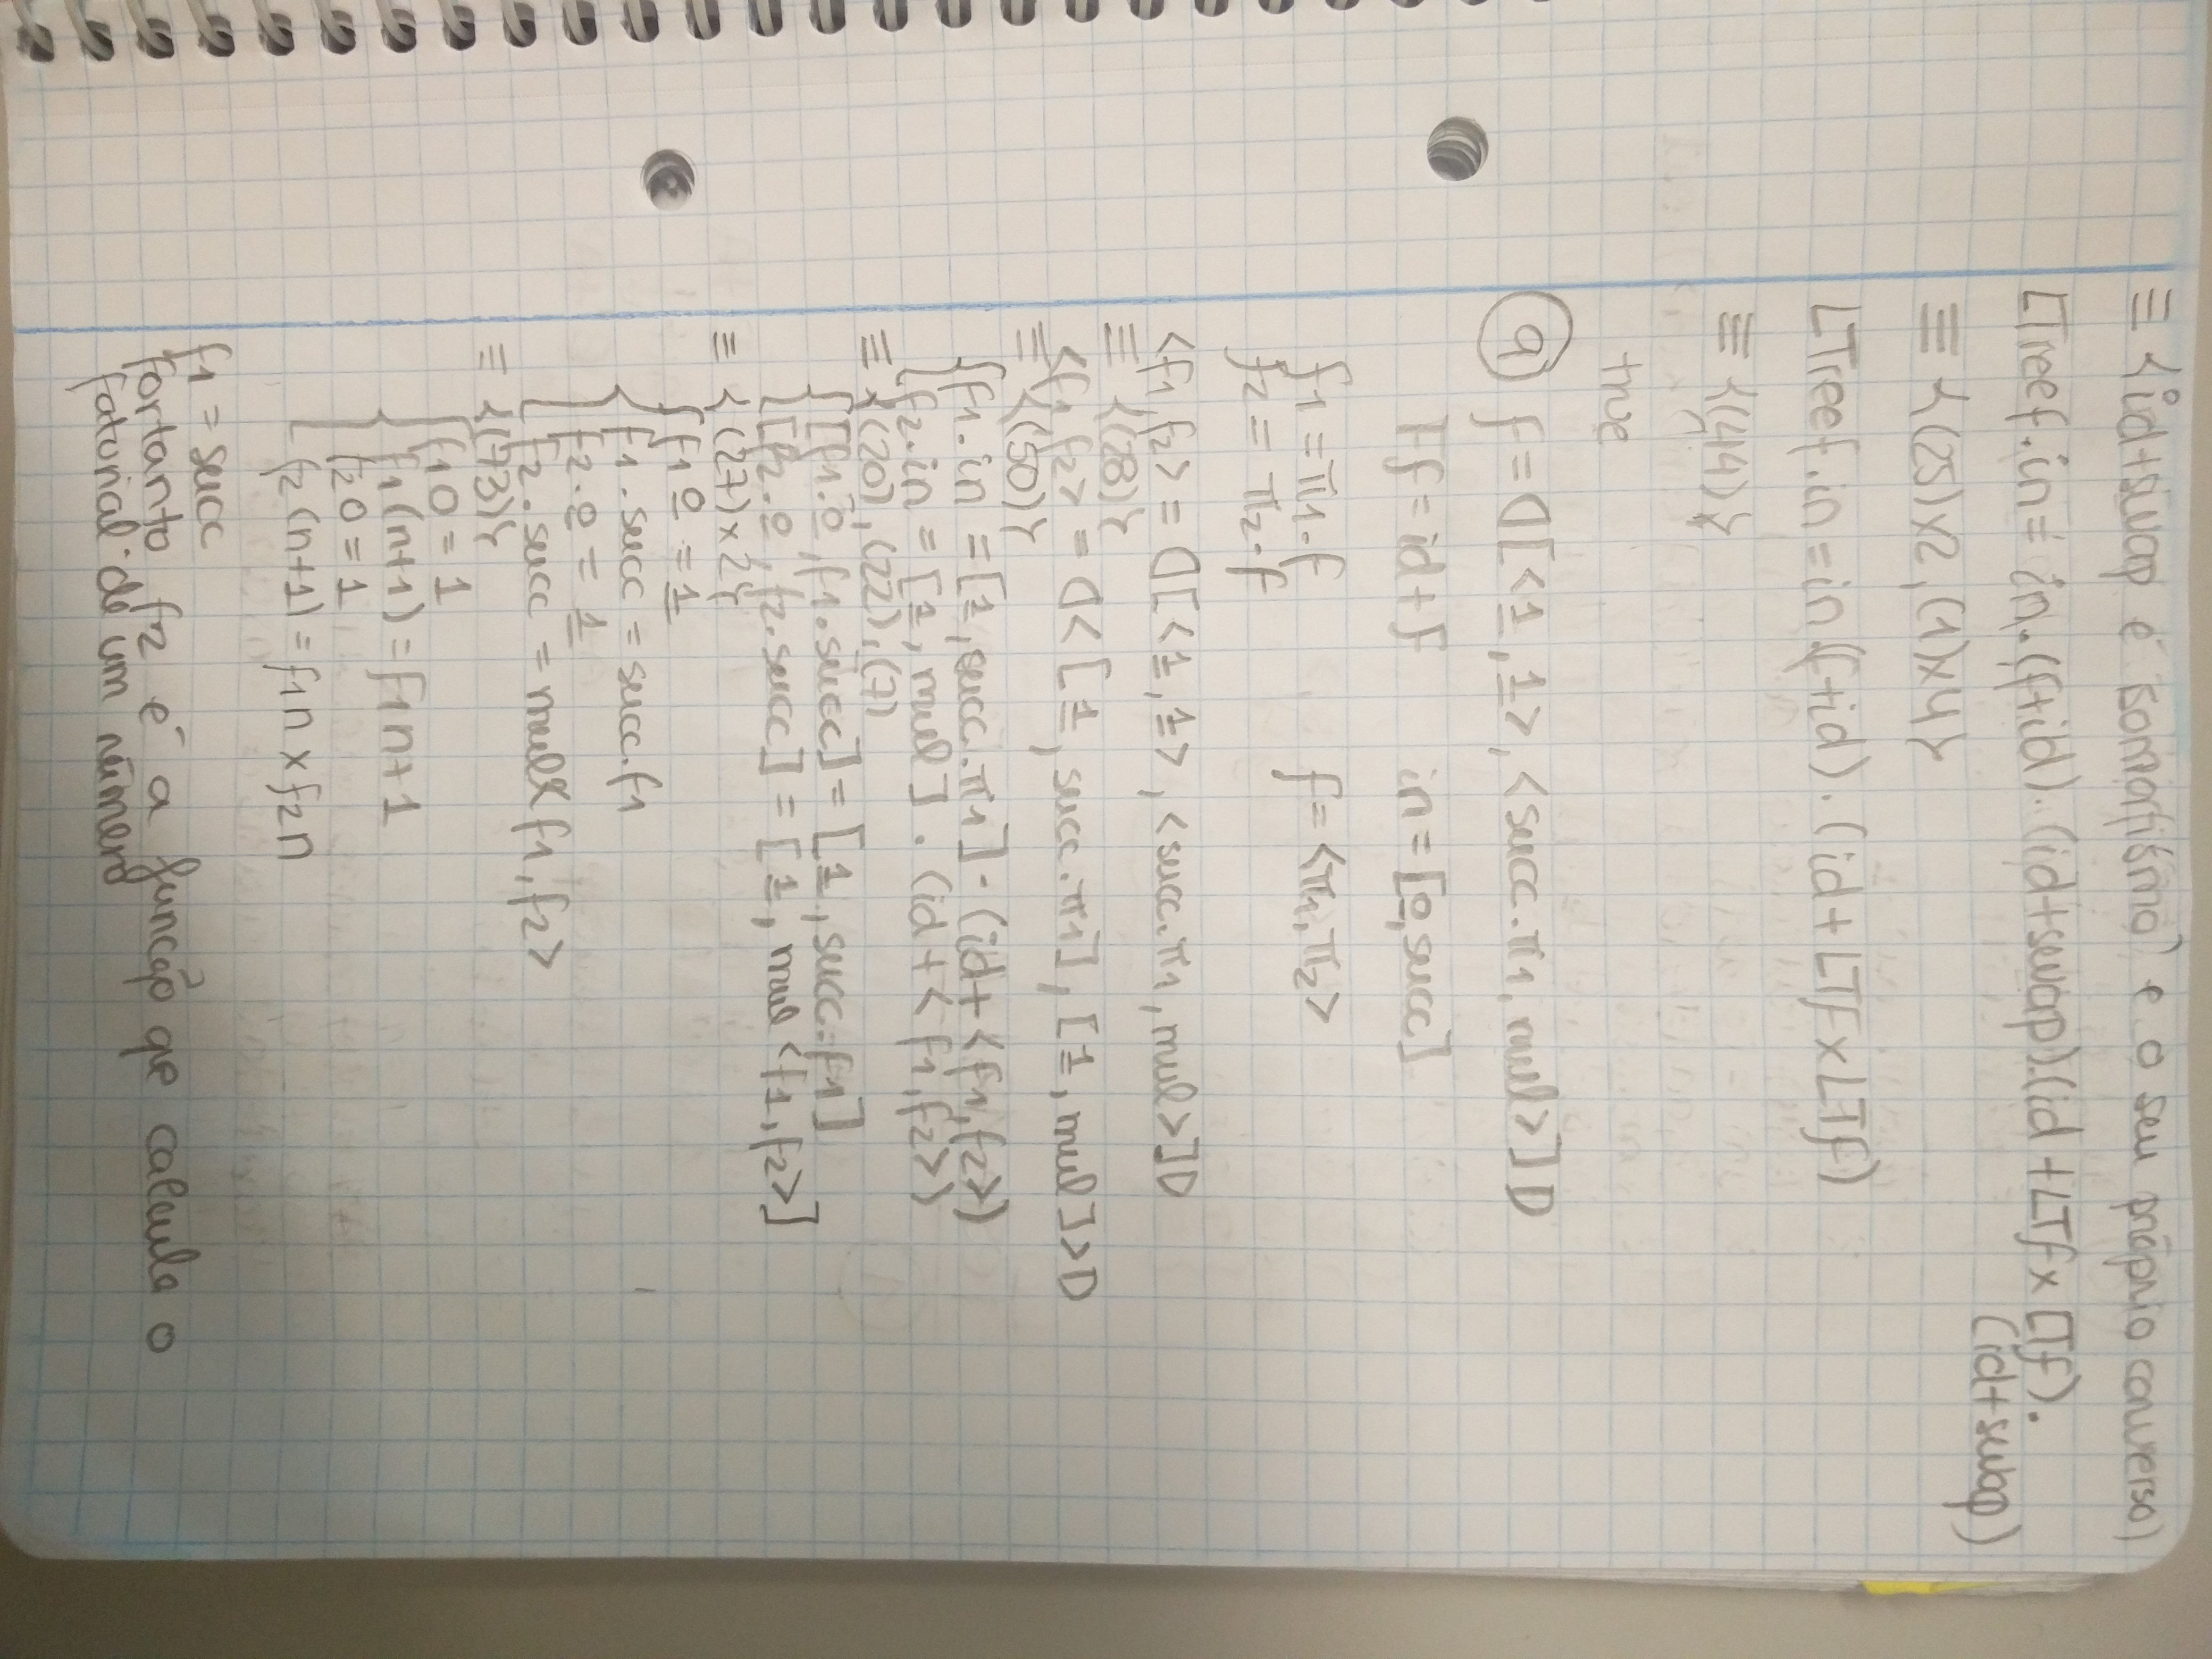 ≡ {id+swap é isomorfismo e o seu próprio converso}
LTreef.in = in.(f+id).(id+swap).(id+LTf×LTf).
(id+swap)
≡ {(25)×2, (1)×4}
LTreef.in = in.(f+id).(id+LTf×LTf)
≡ {(44)}
true
9 f = ⦇[<1̲,1̲>, <succ.π1, mul>]⦈
Ff = id+F in = [0̲,succ]
f1 = π1.f f = <π1,π2>
f2 = π2.f
<f1,f2> = ⦇[<1̲,1̲>, <succ.π1, mul>]⦈
≡ {(28)}
<f1,f2> = ⦇<[1̲, succ.π1], [1̲, mul]>⦈
≡ {(50)}
{f1.in = [1̲, succ.π1].(id+<f1,f2>)
f2.in = [1̲, mul].(id+<f1,f2>)
≡ {(20), (22), (7)
{[f1.0̲, f1.succ] = [1̲, succ.f1]
[f2.0̲, f2.succ] = [1̲, mul<f1,f2>]
≡ {(27)×2}
{f1 0̲ = 1̲
f1.succ = succ.f1
f2.0̲ = 1̲
f2.succ = mul<f1,f2>
≡ {(73)}
{f1 0 = 1
f1(n+1) = f1n+1
f2 0 = 1
f2(n+1) = f1n × f2n
f1 = succ
Portanto f2 é a função qe calcula o
fatorial de um número